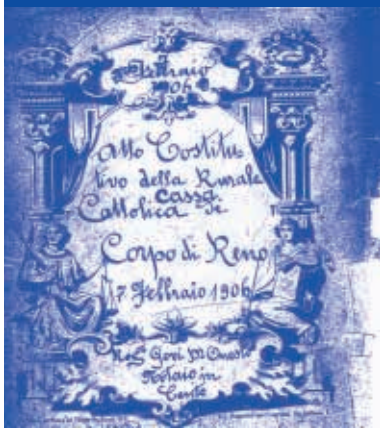 7 Febbraio
1906
Atto Costitu
tivo della Rurale
Cassa
Cattolica di
Corpo di Reno
7 Febbraio 1906
Not. Govi
Notaio in
Cento